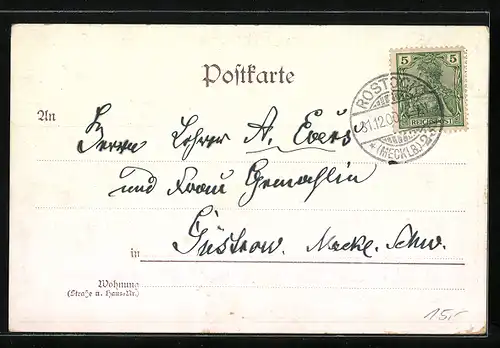 Postkarte
5 5
ROSTOCK
31.12.00
* (MECKLB) 2
REICHSPOST
An
Herrn Lehrer A. Evers
und Frau Gemahlin
in Güstrow. Meckl. Schw.
Wohnung
(Straße u. Haus-Nr.)
15,-